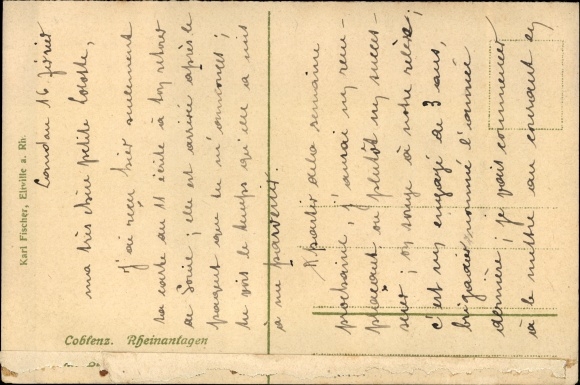 Condan 16 février
ma très chère petite Cocotte,
j'ai reçu hier seulement
ta carte du 11 écrite à ton retour
de ; elle est arrivée après le
paquet que tu m'annonces ;
tu vois le temps qu'elle a mis
à me parvenir.
A partir de la semaine
prochaine j'aurai mon rem-
plaçant ou plutôt mon succes-
seur ; on songe à notre relève ;
c'est un engagé de 3 ans,
brigadier nommé l'année
dernière ; je vais commencer
à le mettre au courant de
Karl Fischer, Eltville a. Rh.
Coblenz. Rheinanlagen